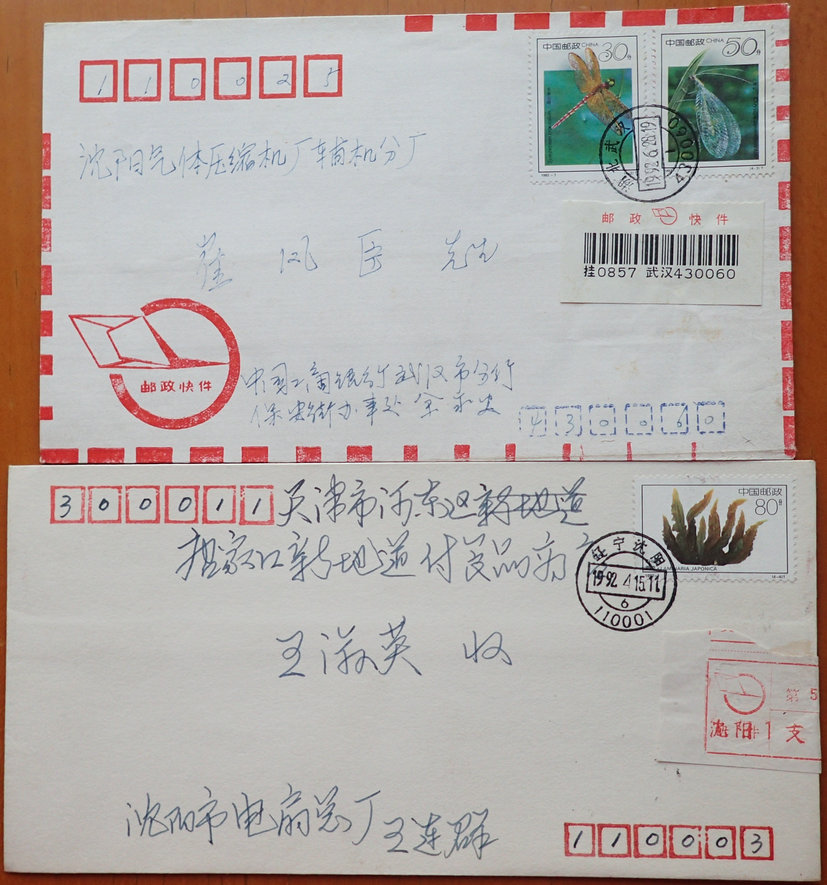 110025
中国邮政 CHINA 30分
中国邮政 CHINA 50分
沈阳气体压缩机厂辅机分厂
湖北武汉
1992.6.28.19
430060
崔凤臣 先生
邮政 快件
挂0857 武汉430060
邮政快件
中国工商银行武汉市分行
保安街办事处 余
430060
300011
天津市河东区新地道
中国邮政
80分
LAMINARIA JAPONICA
新地道付食品商
辽宁沈阳
1992.4.15.11
6
110001
王淑英 收
第 5
沈阳 1 支
沈阳市电扇总厂 王连群
110003